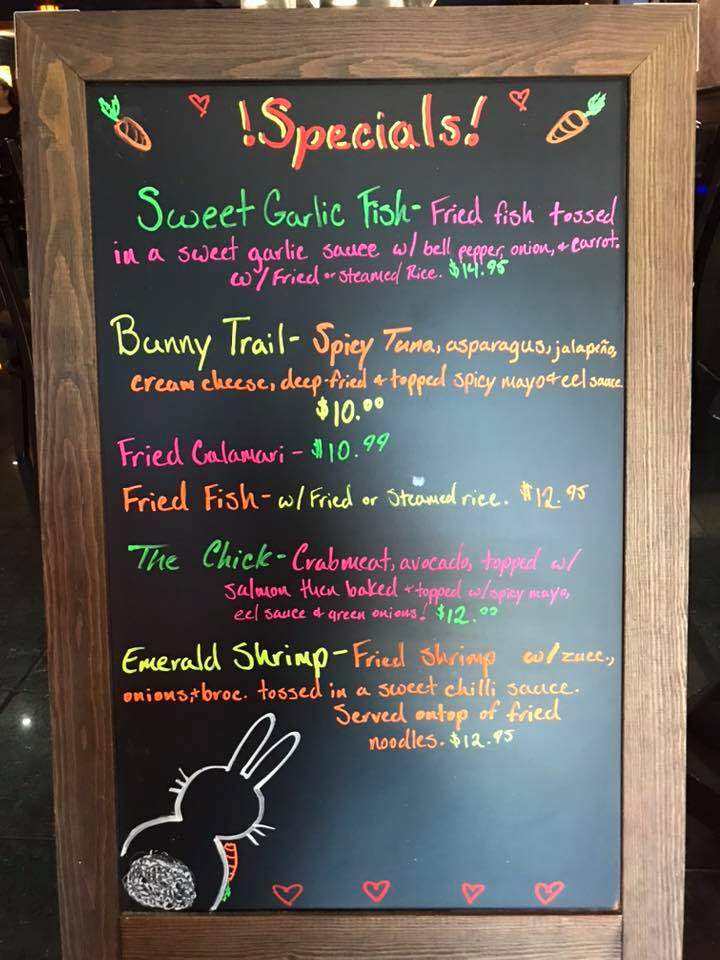 !Specials!
Sweet Garlic Fish- Fried fish tossed
in a sweet garlic sauce w/ bell pepper, onion, & carrot.
w/ Fried or Steamed Rice. $14.95
Bunny Trail- Spicy Tuna, asparagus, jalapeño,
cream cheese, deep-fried & topped spicy mayo & eel sauce
$10.00
Fried Calamari - $10.99
Fried Fish- w/ Fried or Steamed rice. $12.95
The Chick- Crabmeat, avocado, topped w/
salmon then baked & topped w/ spicy mayo,
eel sauce & green onions! $12.00
Emerald Shrimp- Fried shrimp w/ zucc.,
onions, & broc. tossed in a sweet chilli sauce.
Served ontop of fried
noodles. $12.95